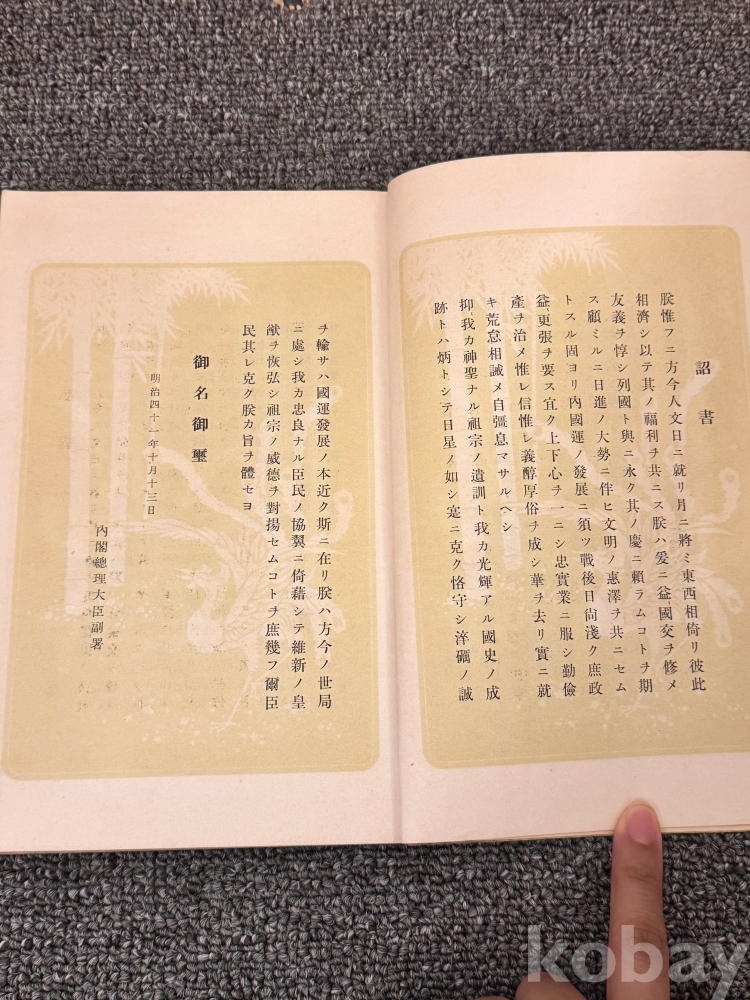 詔書
朕惟フニ方今人文日ニ就リ月ニ將ミ東西相倚リ彼此
相濟シ以テ其ノ福利ヲ共ニス朕ハ爰ニ益國交ヲ修メ
友義ヲ惇シ列國ト與ニ永ク其ノ慶ニ賴ラムコトヲ期
ス顧ミルニ日進ノ大勢ニ伴ヒ文明ノ惠澤ヲ共ニセム
トスル固ヨリ內國運ノ發展ニ須ツ戰後日尙淺ク庶政
益更張ヲ要ス宜ク上下心ヲ一ニシ忠實業ニ服シ勤儉
產ヲ治メ惟レ信惟レ義醇厚俗ヲ成シ華ヲ去リ實ニ就
キ荒怠相誡メ自彊息マサルヘシ
抑我カ神聖ナル祖宗ノ遺訓ト我カ光輝アル國史ノ成
跡トハ炳トシテ日星ノ如シ寔ニ克ク恪守シ淬礪ノ誠
ヲ輸サハ國運發展ノ本近ク斯ニ在リ朕ハ方今ノ世局
ニ處シ我カ忠良ナル臣民ノ協翼ニ倚藉シテ維新ノ皇
猷ヲ恢弘シ祖宗ノ威德ヲ對揚セムコトヲ庶幾フ爾臣
民其レ克ク朕カ旨ヲ體セヨ
御名御璽
明治四十一年十月十三日
內閣總理大臣副署
kobay